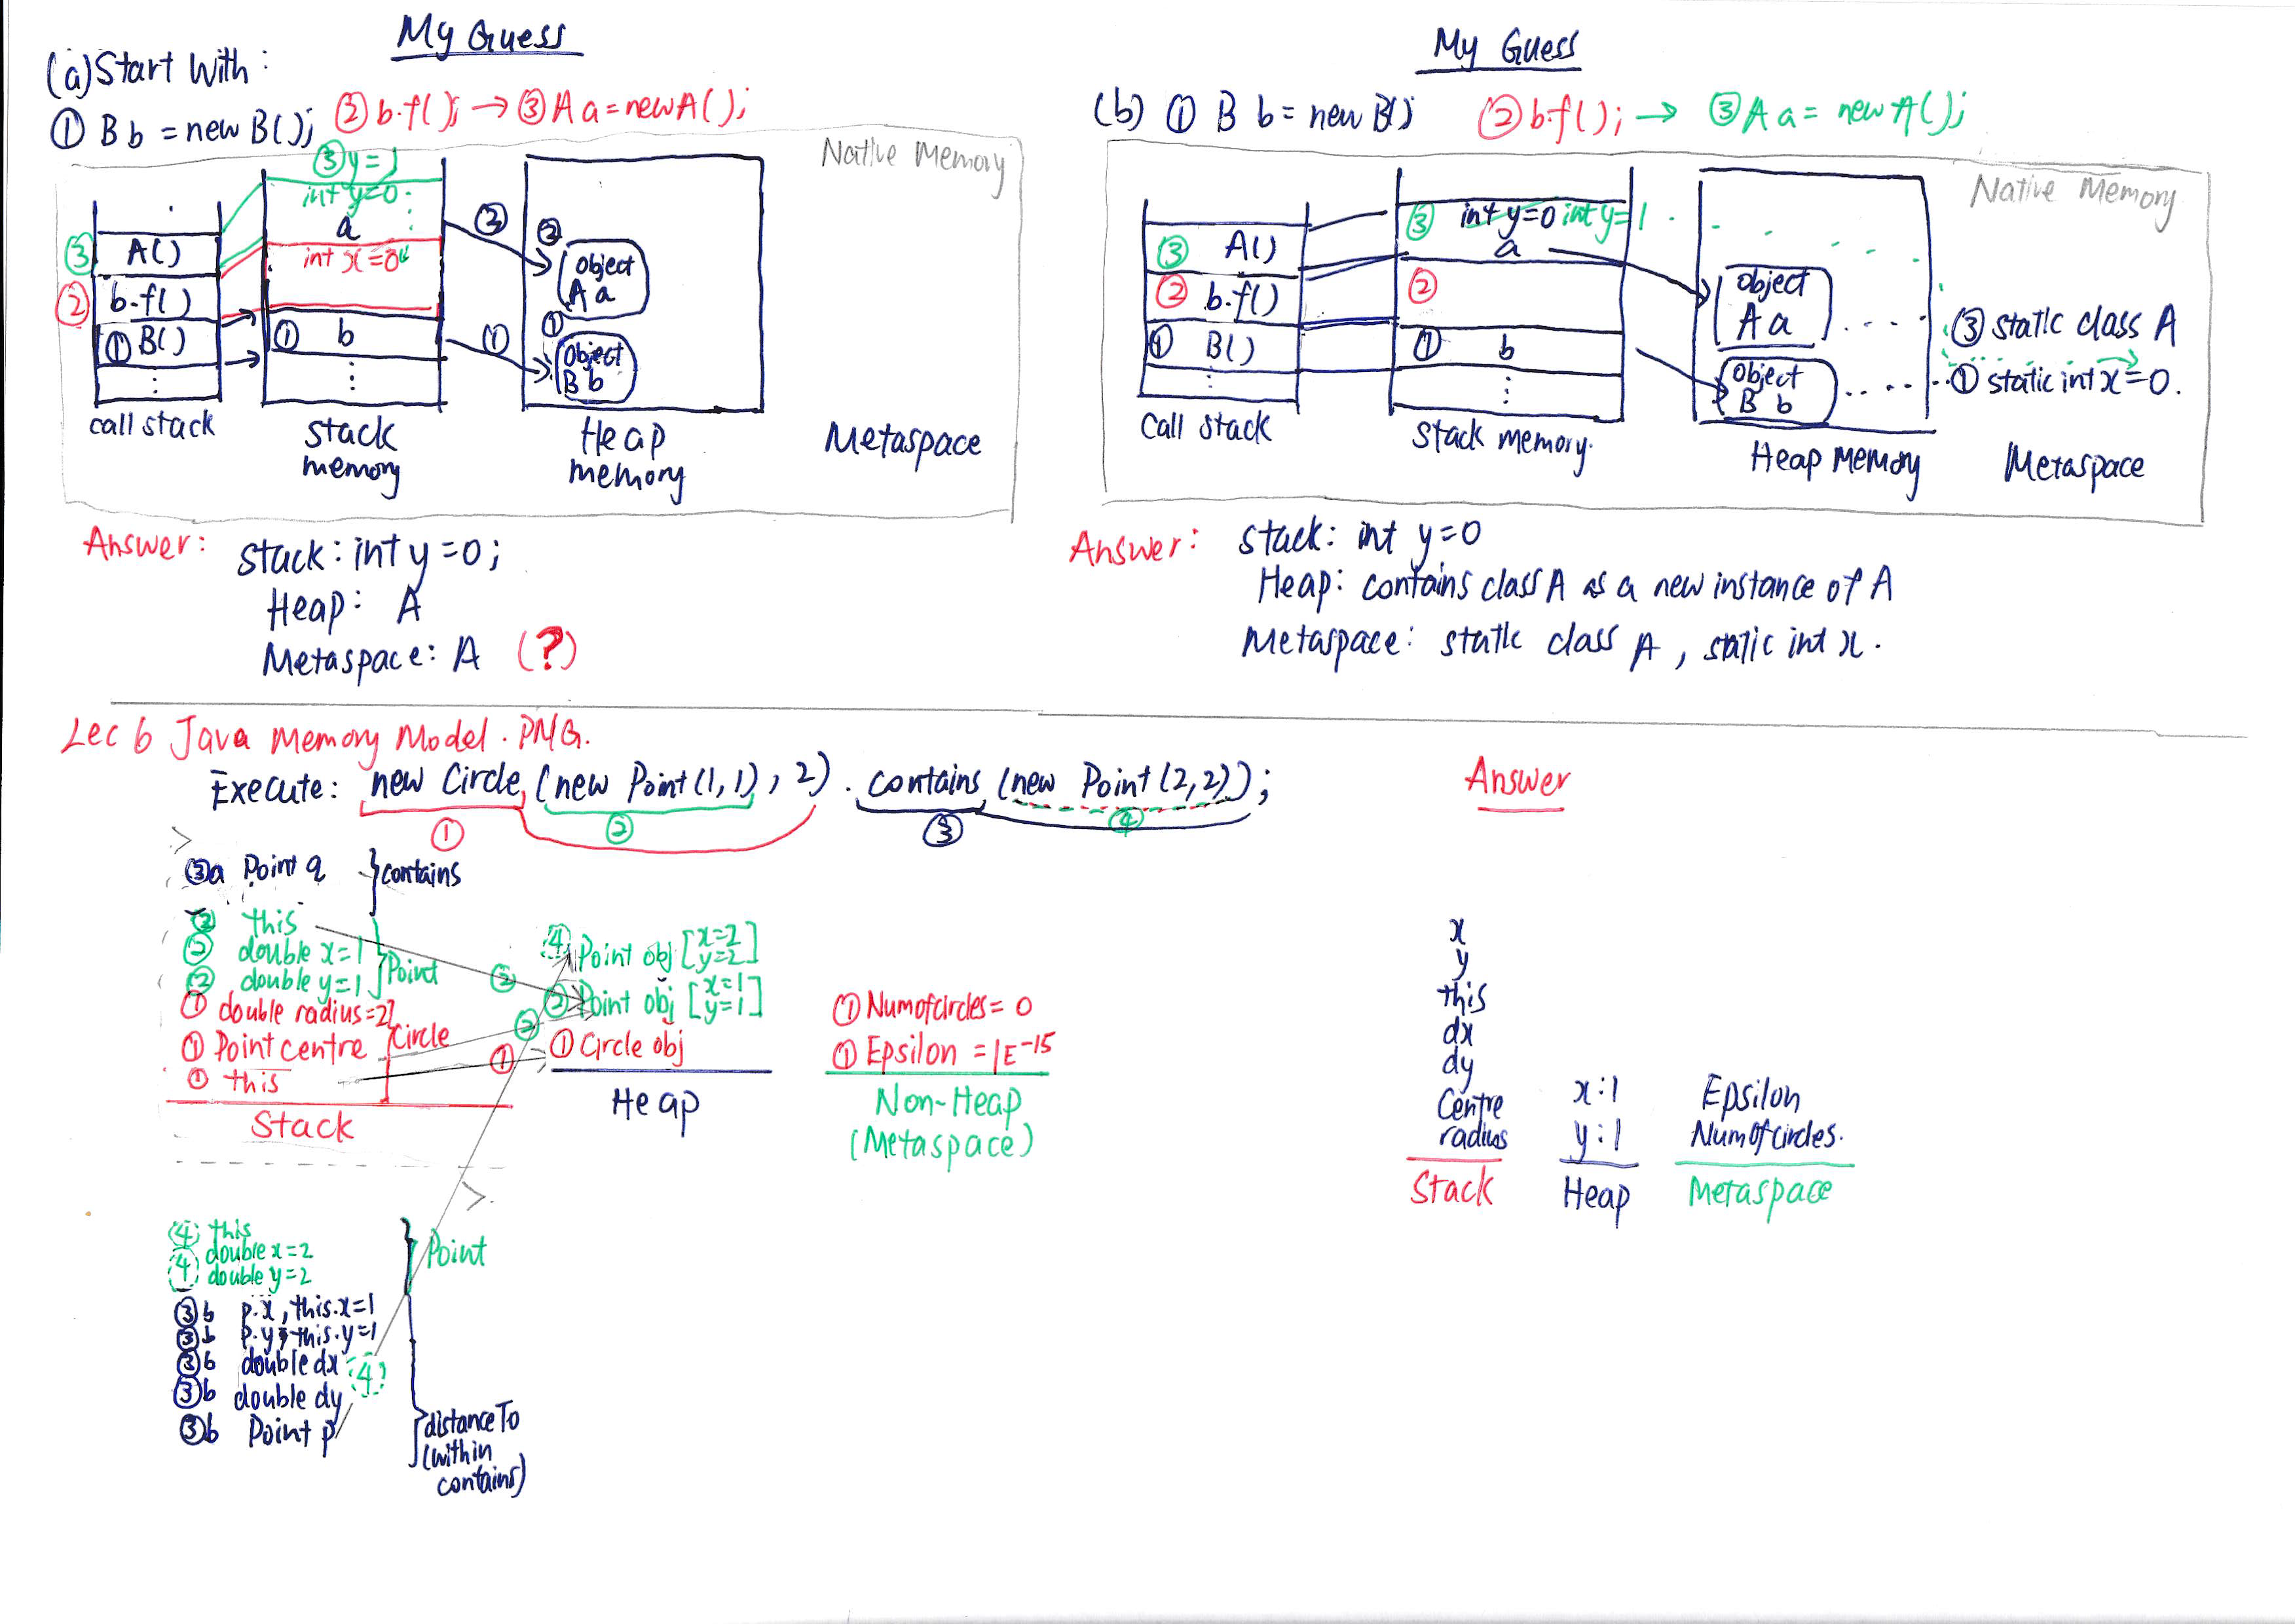 My Guess
(a) Start With:
① B b = new B(); ② b.f(); → ③ A a = new A();
Native Memory
③ y = 1
int y=0
a
int x=0
③ A()
② b.f()
① B()
① b
②
①
② Object A a
① Object B b
call stack
Stack memory
Heap memory
Metaspace
Answer: Stack: int y = 0;
Heap: A
Metaspace: A (?)
My Guess
(b) ① B b = new B() ② b.f(); → ③ A a = new A();
Native Memory
③ int y=0 int y=1
a
③ A()
② b.f()
① B()
②
① b
Object A a
Object B b
③ static class A
① static int x=0.
Call Stack
Stack memory.
Heap Memory
Metaspace
Answer: Stack: int y=0
Heap: contains class A as a new instance of A
Metaspace: static class A, static int x.
Lec 6 Java Memory Model. PNG.
Execute: new Circle (new Point(1,1), 2) . contains (new Point(2,2));
① ② ③ ④
③a Point q } contains
② this
② double x=1
② double y=1 } Point
① double radius=2
① Point centre } Circle
① this
Stack
④ Point obj [x=2 y=2]
② Point obj [x=1 y=1]
① Circle obj
②
②
①
Heap
① Numofcircles = 0
① Epsilon = 1E-15
Non-Heap
(Metaspace)
④ this
double x=2
④ double y=2
Point
③b p.x, this.x=1
③b p.y, this.y=1
③b double dx
④
③b double dy
③b Point p
distanceTo
(within
contains)
Answer
x
y
this
dx
dy
Centre
radius
Stack
x:1
y:1
Heap
Epsilon
Numofcircles.
Metaspace